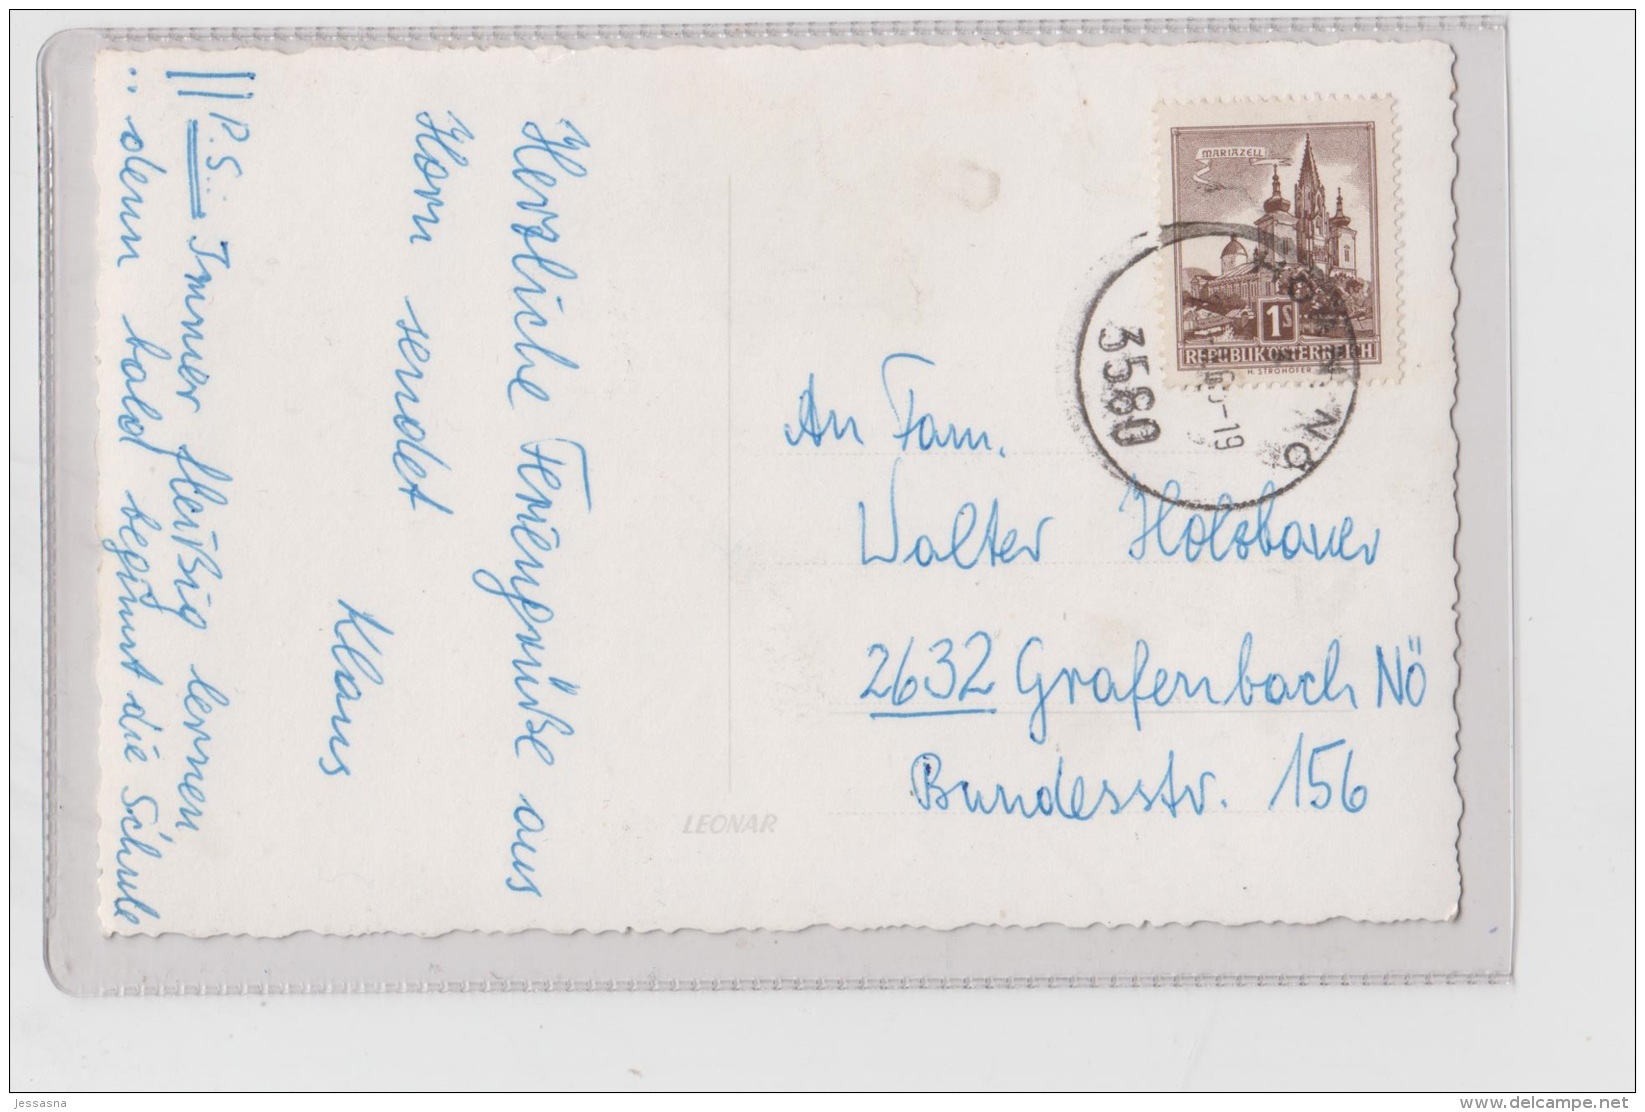 Herzliche Feriengrüße aus
Horn sendet
Klaus
P.S.: Immer fleißig lernen
... denn bald beginnt die Schule
MARIAZELL
1S
REPUBLIK ÖSTERREICH
H. STROHOFER
HORN NÖ
-19
3580
An Fam.
Walter Holzbauer
2632 Grafenbach NÖ
Bundesstr. 156
LEONAR
jessasna
delcampe.net